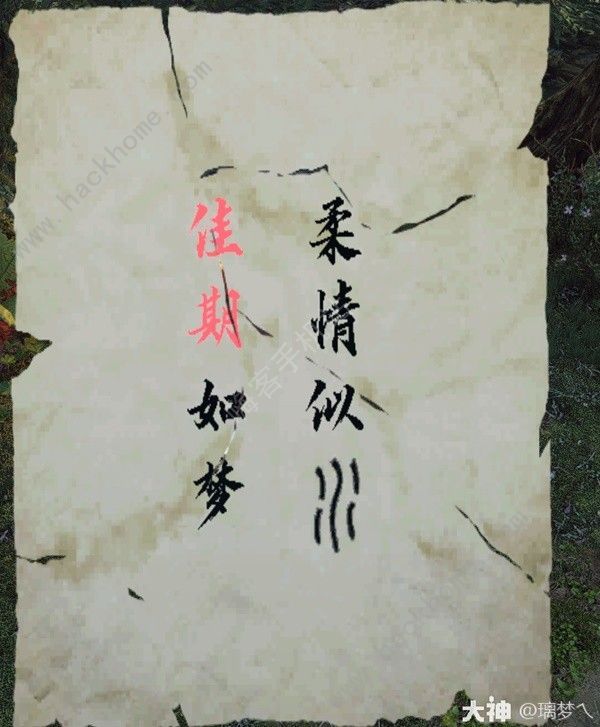 柔情似水
佳期如梦
www.hackhome.com
大神 @璃梦へ